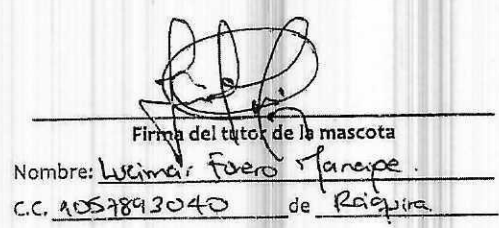 Firma del tutor de la mascota
Nombre: Lucimar Forero
C.C. 1057893040 de Ráquira